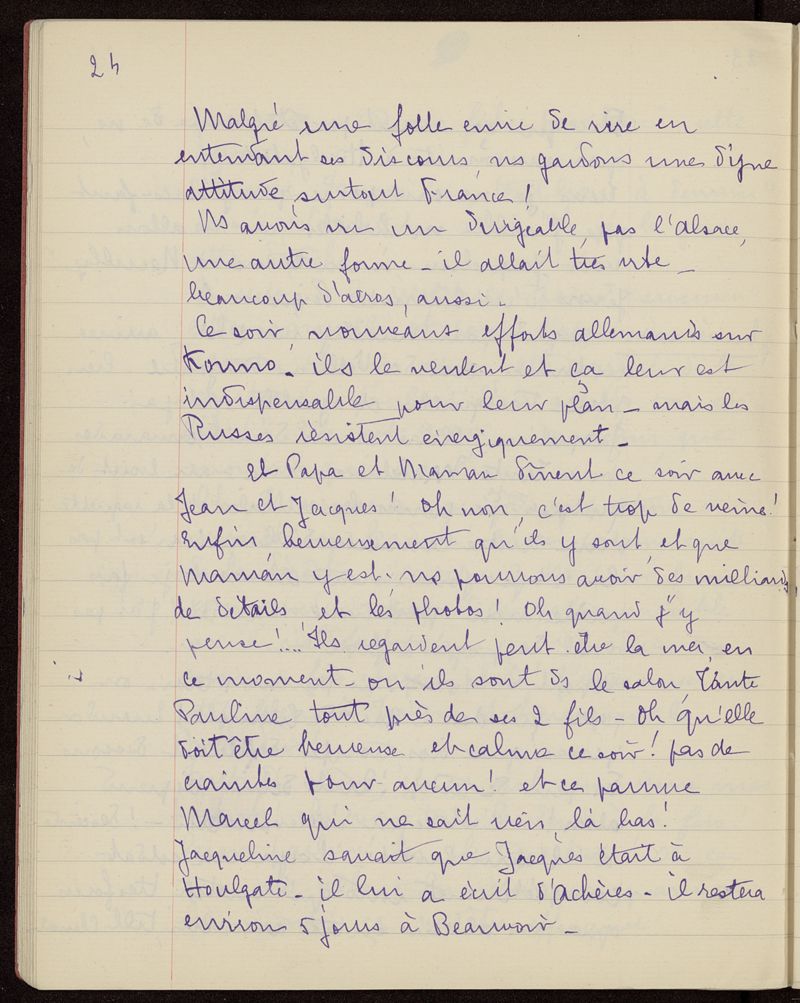 24
Malgré une folle envie de rire en
entendant ses discours, ns gardons une digne
attitude, surtout France!
Ns avons vu un dirigeable, pas l'alsace,
une autre forme - il allait très vite -
beaucoup d'aéros, aussi.
Ce soir, nouveaux efforts allemands sur
Kovno. ils le veulent et ça leur est
indispensable pour leur plan - mais les
Russes résistent énergiquement -
et Papa et Maman dînent ce soir avec
Jean et Jacques! Oh non, c'est trop de veine!
Enfin, heureusement qu'ils y sont, et que
Maman y est. ns pourrons avoir des milliards
de détails, et les photos! Oh quand j'y
pense!.... Ils regardent peut-être la mer, en
ce moment - ou ils sont ds le salon, Tante
Pauline tout près de ses 2 fils - Oh qu'elle
doit être heureuse et calme ce soir! pas de
craintes pour aucun! et ce pauvre
Marcel qui ne sait rien, là bas!
Jacqueline savait que Jacques était à
Houlgate - il lui a écrit d'Achères - il restera
environ 5 jours à Beauvoir -